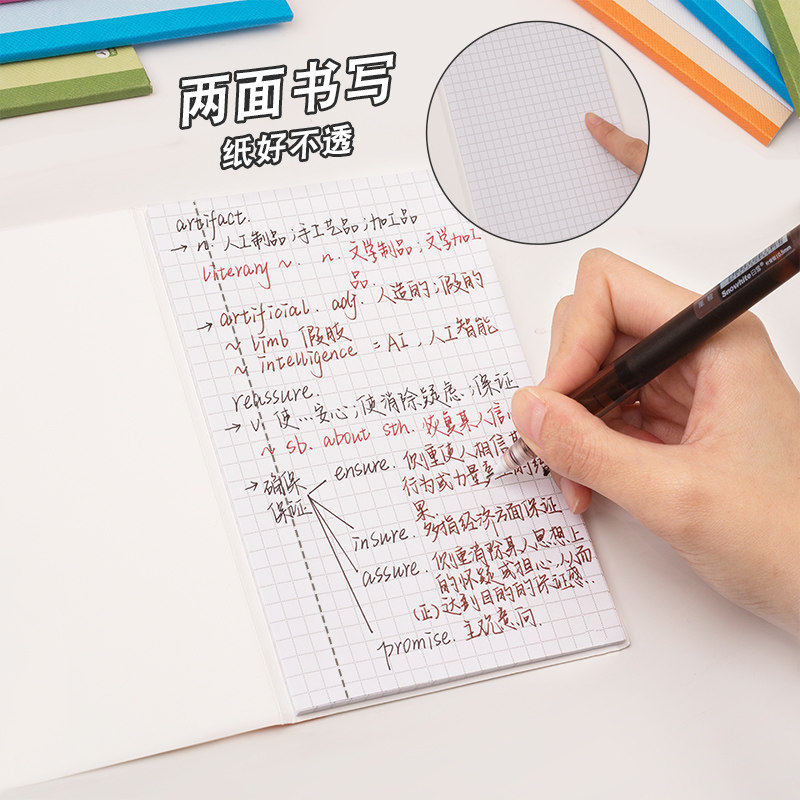 两面书写
纸好不透
artifact.
→ n. 人工制品;手工艺品;加工品
literary ~. n. 文学制品;文学加工
品.
→ artificial. adj. 人造的;假的
~ limb 假肢
~ intelligence = AI, 人工智能
reassure.
→ v. 使…安心;使消除疑虑;保证
~ sb. about sth. 恢复某人信
→ 确保
保证
ensure. 侧重使人相信
行为或力量产生的结
果.
insure. 多指经济方面保证
assure. 侧重消除某人思想上
的怀疑或担心,从而
(正)达到目的的保证感.
promise. 主观意向.
Snowhite 白雪
0.5mm